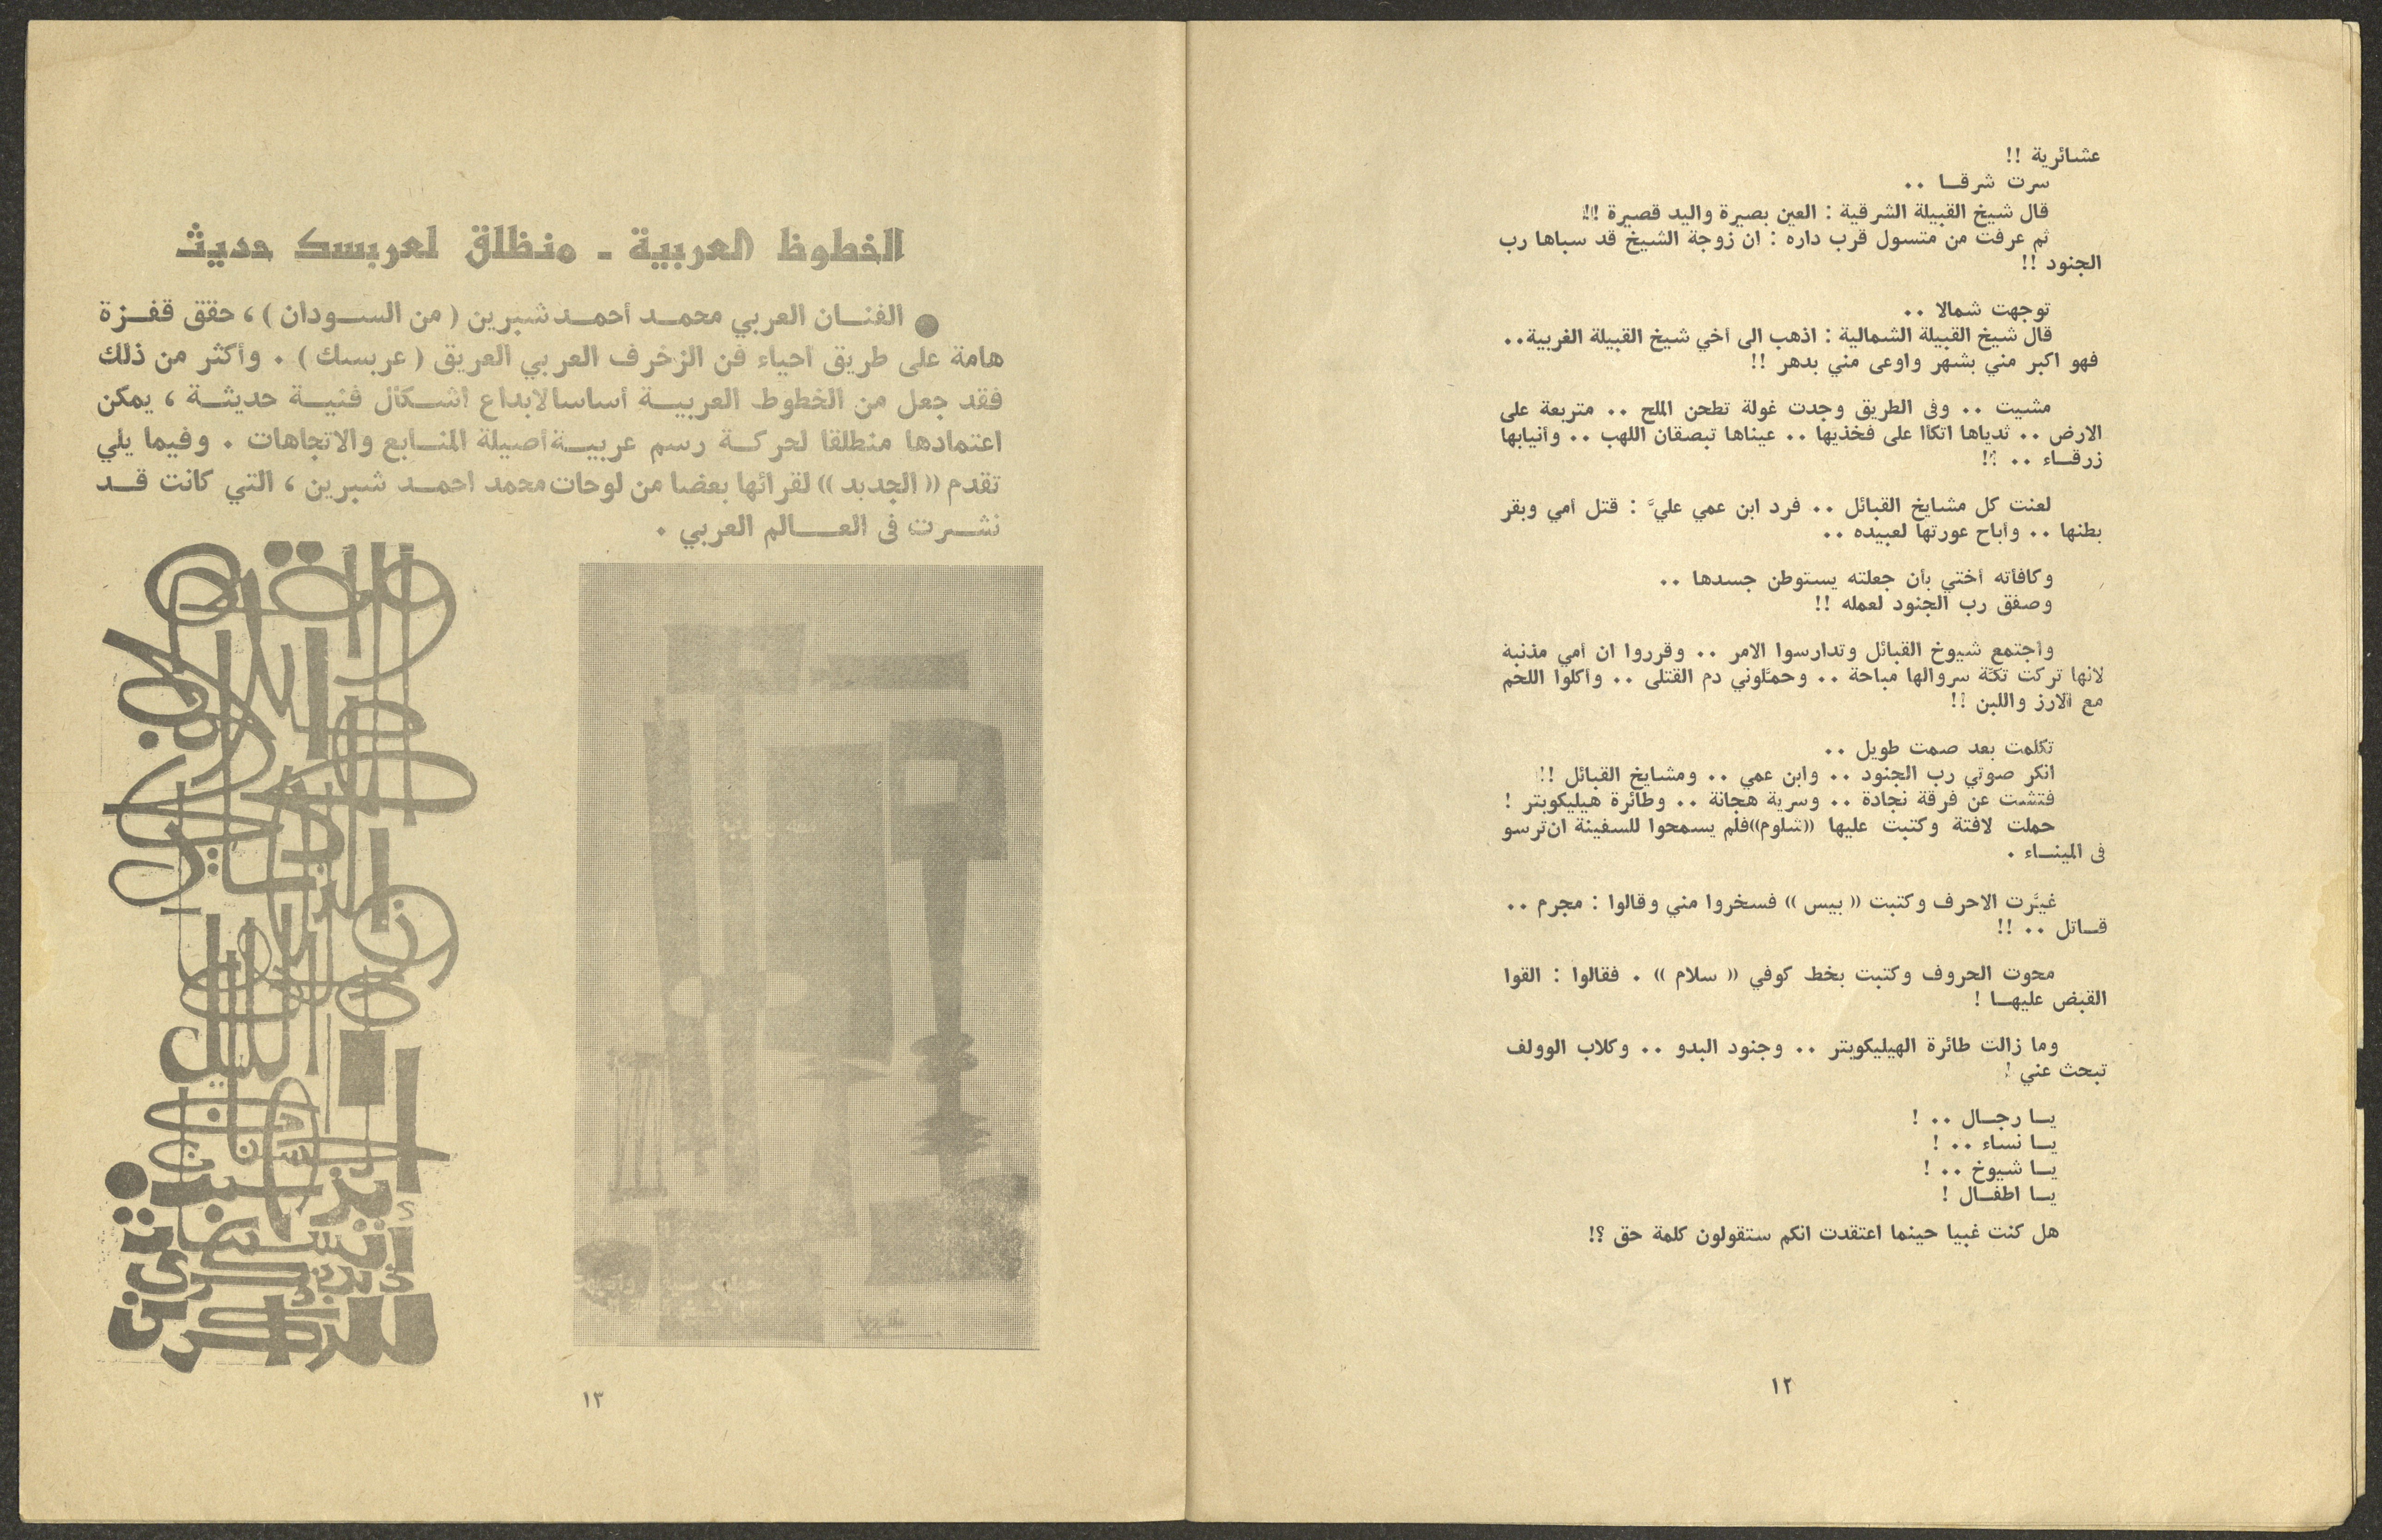 عشائرية !!
سرت شرقـا ..
قال شيخ القبيلة الشرقية : العين بصيرة واليد قصيرة !!!
ثم عرفت من متسول قرب داره : ان زوجة الشيخ قد سباها رب
الجنود !!
توجهت شمالا ..
قال شيخ القبيلة الشمالية : اذهب الى أخي شيخ القبيلة الغربية..
فهو اكبر مني بشهر واوعى مني بدهر !!
مشيت .. وفى الطريق وجدت غولة تطحن الملح .. متربعة على
الارض .. ثدياها اتكأا على فخذيها .. عيناها تبصقان اللهب .. وأنيابها
زرقـاء .. !!
لعنت كل مشايخ القبائل .. فرد ابن عمي عليَّ : قتل أمي وبقر
بطنها .. وأباح عورتها لعبيده ..
وكافأته أختي بأن جعلته يستوطن جسدها ..
وصفق رب الجنود لعمله !!
واجتمع شيوخ القبائل وتدارسوا الامر .. وقرروا ان أمي مذنبة
لانها تركت تكّة سروالها مباحة .. وحمَّلوني دم القتلى .. وأكلوا اللحم
مع الارز واللبن !!
تكلمت بعد صمت طويل ..
انكر صوتي رب الجنود .. وابن عمي .. ومشايخ القبائل !!
فتشت عن فرقة نجادة .. وسرية هجانة .. وطائرة هيليكوبتر !
حملت لافتة وكتبت عليها «شلوم» فلم يسمحوا للسفينة ان ترسو
فى المينـاء .
غيَّرت الاحرف وكتبت « بيس » فسخروا مني وقالوا : مجرم ..
قـاتل .. !!
محوت الحروف وكتبت بخط كوفي « سلام » . فقالوا : القوا
القبض عليهـا !
وما زالت طائرة الهيليكوبتر .. وجنود البدو .. وكلاب الوولف
تبحث عني !
يـا رجـال .. !
يـا نساء .. !
يـا شيوخ .. !
يـا اطفـال !
هل كنت غبيا حينما اعتقدت انكم ستقولون كلمة حق ؟!
١٢
الخطوط العربية - منطلق لعربسك حديث
● الفنـان العربي محمـد أحمـد شبرين ( من السـودان ) ، حقق قفـزة
هامة على طريق احياء فن الزخرف العربي العريق ( عربسك ) . وأكثر من ذلك
فقد جعل من الخطوط العربيـة أساسا لابداع اشـكال فنيـة حديثـة ، يمكن
اعتمادها منطلقا لحركـة رسم عربيـة أصيلة المنـابع والاتجاهات . وفيما يلي
تقدم « الجديد » لقرائها بعضا من لوحات محمد احمـد شبرين ، التي كانت قـد
نشـرت فى العـالم العربي .
١٣